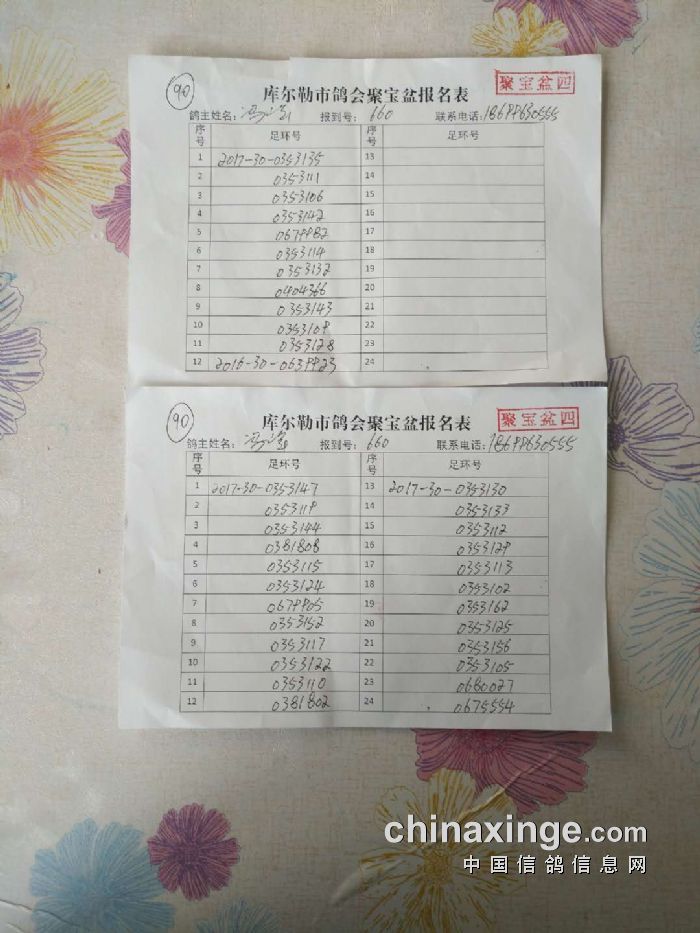 90
库尔勒市鸽会聚宝盆报名表
聚宝盆四
鸽主姓名: 报到号: 660 联系电话:
序号 足环号 序号 足环号
1 2017-30-0353135 13
2 0353111 14
3 0353106 15
4 0353142 16
5 0679982 17
6 0353114 18
7 0353132 19
8 0404366 20
9 0353143 21
10 0353109 22
11 0353128 23
12 2016-30-0639923 24
90
库尔勒市鸽会聚宝盆报名表
聚宝盆四
鸽主姓名: 报到号: 660 联系电话:
序号 足环号 序号 足环号
1 2017-30-0353147 13 2017-30-0353130
2 0353119 14 0353133
3 0353144 15 0353112
4 0381808 16 0353129
5 0353115 17 0353113
6 0353124 18 0353102
7 0679905 19 0353162
8 0353152 20 0353125
9 0353117 21 0353156
10 0353122 22 0353105
11 0353110 23 0680027
12 0381802 24 0675554
chinaxinge.com
中国信鸽信息网